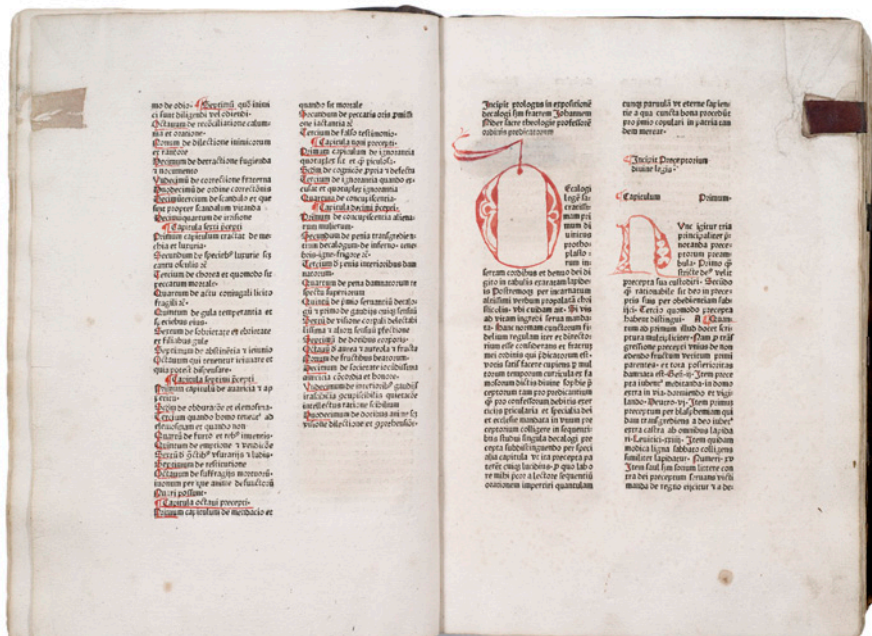 mo de odio· Septimū quō inimi
ci sunt diligendi vel odiendi·
Octauum de recōciliatione calum
nia et oratione·
Nonum de dilectione inimicorum
et rancore
Decimum de detractione fugienda
nocumento
Vndecimū de correctione fraterna
Duodecimū de ordine correctōnis
Decimūtercium de scandalo et que
sint propter scandalum vitanda
Decimumquartum de irrisione
Capitula sexti p̄cepti
Primum capitulum tractat de me
chia et luxuria·
Secundum de specieb⁹ luxurie
cantu osculis
Tercium de chorea et quomodo sit
peccatum mortale·
Quartum de actu coniugali licito
fragili
Quintum de gula temperantia et
speciebus eius·
Sextum de sobrietate et ebrietate
et filiabus gule
Septimum de abstinētia et ieiunio
Octauum qui tenentur ieiunare et
quis potest dispensare·
Capitula septimi p̄cepti
Primum capitulū de auaricia
Secūdū de obduratōe et elemosina·
Tercium quando homo tenet̄ ad
elemosynam et quando non
Quartū de furto et reb⁹ inuentis·
Quintum de emptione
Sextū
Septimum de restitutione
Octauum de suffragijs mortuorū·
defunctorū
possunt·
Capitula octaui precepti·
Primum capitulum de mendacio et
quando sit mortale
Secundum de peccatis oris
iactantia
Tercium de falso testimonio·
Capitula noni precepti·
Primum capitulum de ignorantia
quotuplex sit et
Secūdū de cognitōe p̄pria defectu
Tercium de ignorantia quando ex-
cusat et quotuplex ignorantia
Quartum de concupiscentia·
Capitula decimi p̄cepti·
Primum de concupiscentia aliena-
rum mulierum·
Secundum de penis transgredien-
tium decalogum· de inferno· tene
bris· igne· frigore
Tercium de penis interioribus dam
natorum·
Quartum de pena damnatorum
spectu superiorum
Quintū de p̄mio seruantiū decalo-
gū primo de gaudijs
Sextū de visione corpali delectabi
lissima alioꝝ sensuū p̄fectione
Septimū de dotibus corporis·
Octauū de aurea aureola fructu
Nonum de fructibus beatorum·
Decimum de societate iocūdissima
amicicia cōcordia et honore·
Vndecimum de interiorib⁹ gaudijs
intellectus ratione scibilium
Duodecimum de dotibus anime
visione dilectione et cōprehensiōe·
Incipit prologus in expositionē
decalogi
Nider sacre theologie professorē
ordinis predicatorum
Decalogi
legē sa-
cratissi-
mam pri
mum di
uinitus
protho-
plasto-
rum in-
sertam cordibus et denuo dei di
gito in tabulis exaratam lapide-
is Postremoqꝫ per incarnatum
altissimi verbum propalatā chri
sticolis· vbi cuidam ait· Si vis
ad vitam ingredi serua manda-
ta· Hanc normam cunctorum fi-
delium regulam iter et directo-
rium esse considerans et fratrum
mei ordinis qui p̄dicatorum est·
votis satisfacere cupiens
torum temporum curricula et fa
mosorum dictis diuine sophie
ceptorum tam pro predicantium
qꝫ pro confessorum debitis exer
cicijs
et ecclesie mandata in vnum pre
ceptorum colligere in sequenti-
bus studui singula decalogi pre
cepta subdistinguendo per speci
alia capitula vt ita precepta pa
teret cuiqꝫ lucidius· quo labo
re mihi pcor a lectore sequentiū
orationem impertiri quantulam
cunqꝫ paruulā vt eterne sapien-
tie a qua cuncta bona procedūt
pro p̄mio copulari in patria tan
dem merear·
Incipit Preceptorium
diuine legis·
Capitulum Primum·
Nvnc igitur tria
principaliter p̄-
notanda prece-
ptorum pream-
bula· Primo qꝫ
stricte de⁹ velit
precepta sua custodiri· Secūdo
qꝫ rationabile sit deo in prece-
ptis suis per obedienciam subi-
ici· Tercio quomodo precepta
habent distingui· A Quan-
tum ad primum illud docet scri-
ptura multipliciter· Nam
gressione precepti vnius de non
edendo fructum vetitum primi
parentes· et tota posterioritas
damnata est· Gen̄·iij· Item prece
pta iubent̄ meditanda· in domo
extra in via· dormiendo et vigi-
lando· Deutro·vj· Item primum
preceptum per blasphemium qui
dam transgrediens a deo iubet̄
extra castra ab omnibus lapida
ri· Leuitici·xxiiij· Item quidam
modica ligna sabbato colligens
similiter lapidatur· Numeri·xv
Item saul
tra dei preceptum seruans victi
manda de regno eijcitur